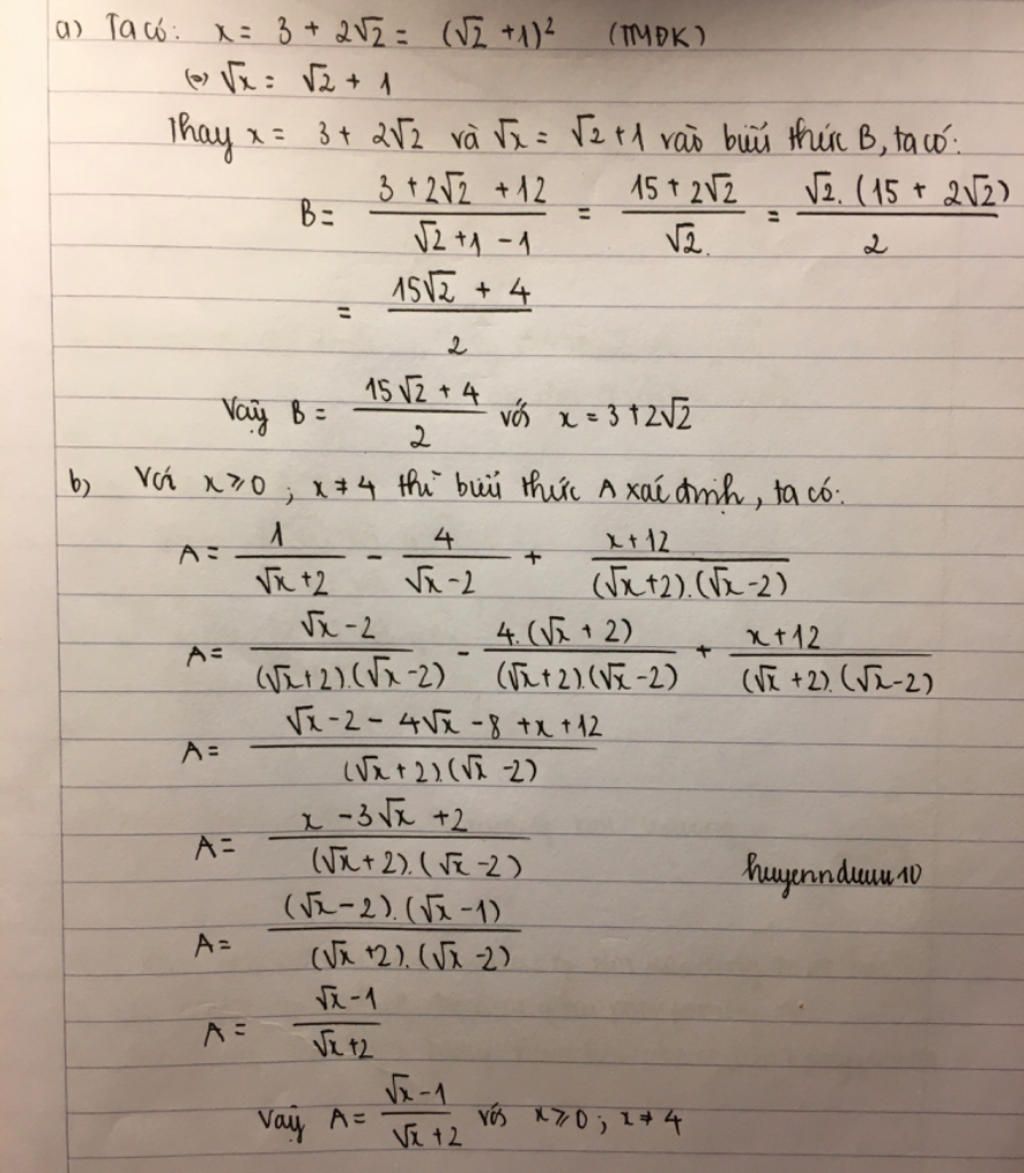 a) Ta có: x = 3 + 2√2 = (√2 + 1)² (TMĐK)
(=) √x = √2 + 1
Thay x = 3 + 2√2 và √x = √2 + 1 vào biểu thức B, ta có:
B = (3 + 2√2 + 12)/(√2 + 1 - 1) = (15 + 2√2)/√2 = (√2.(15 + 2√2))/2
= (15√2 + 4)/2
Vậy B = (15√2 + 4)/2 với x = 3 + 2√2
b) Với x ≥ 0 ; x ≠ 4 thì biểu thức A xác định, ta có:
A = 1/(√x + 2) - 4/(√x - 2) + (x + 12)/((√x + 2).(√x - 2))
A = (√x - 2)/((√x + 2).(√x - 2)) - (4.(√x + 2))/((√x + 2).(√x - 2)) + (x + 12)/((√x + 2).(√x - 2))
A = (√x - 2 - 4√x - 8 + x + 12)/((√x + 2).(√x - 2))
A = (x - 3√x + 2)/((√x + 2).(√x - 2))
huyenndiuuu10
A = ((√x - 2).(√x - 1))/((√x + 2).(√x - 2))
A = (√x - 1)/(√x + 2)
Vậy A = (√x - 1)/(√x + 2) với x ≥ 0 ; x ≠ 4